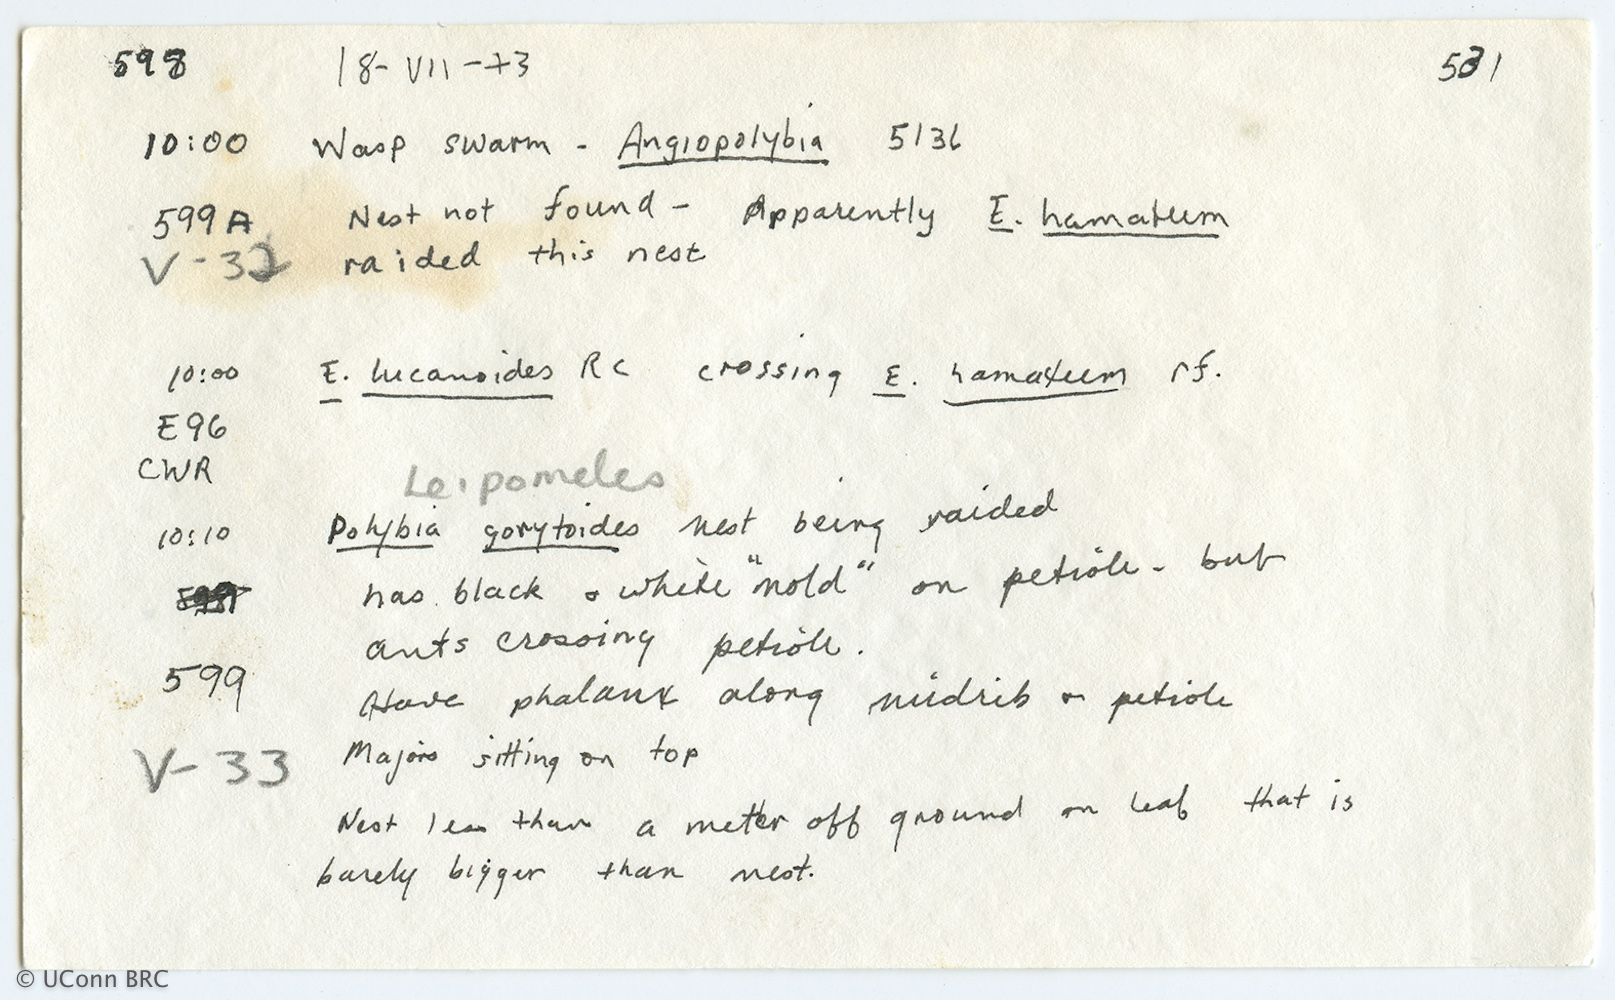 598 18-VII-73 531
10:00 Wasp swarm - Angiopolybia 5136
599A Nest not found - Apparently E. hamatum
V-32 raided this nest
10:00 E. lucanoides RC crossing E. hamatum rf.
E96
CWR
Leipomeles
10:10 Polybia gorytoides nest being raided
has black & white "mold" on petiole - but
ants crossing petiole.
599 Have phalanx along midrib & petiole
V-33 Majors sitting on top
Nest less than a meter off ground on leaf that is
barely bigger than nest.
© UConn BRC